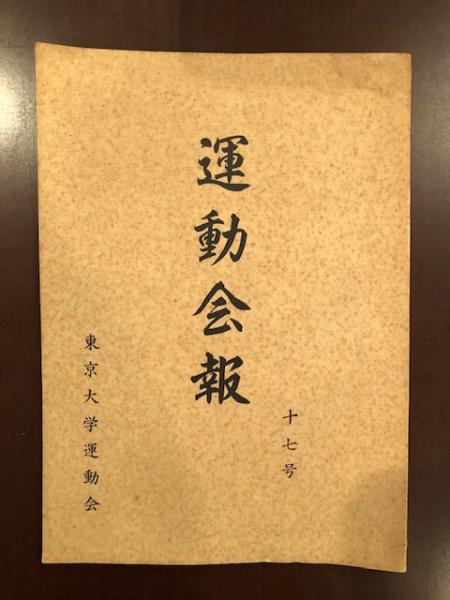 運動会報
十七号
東京大学運動会